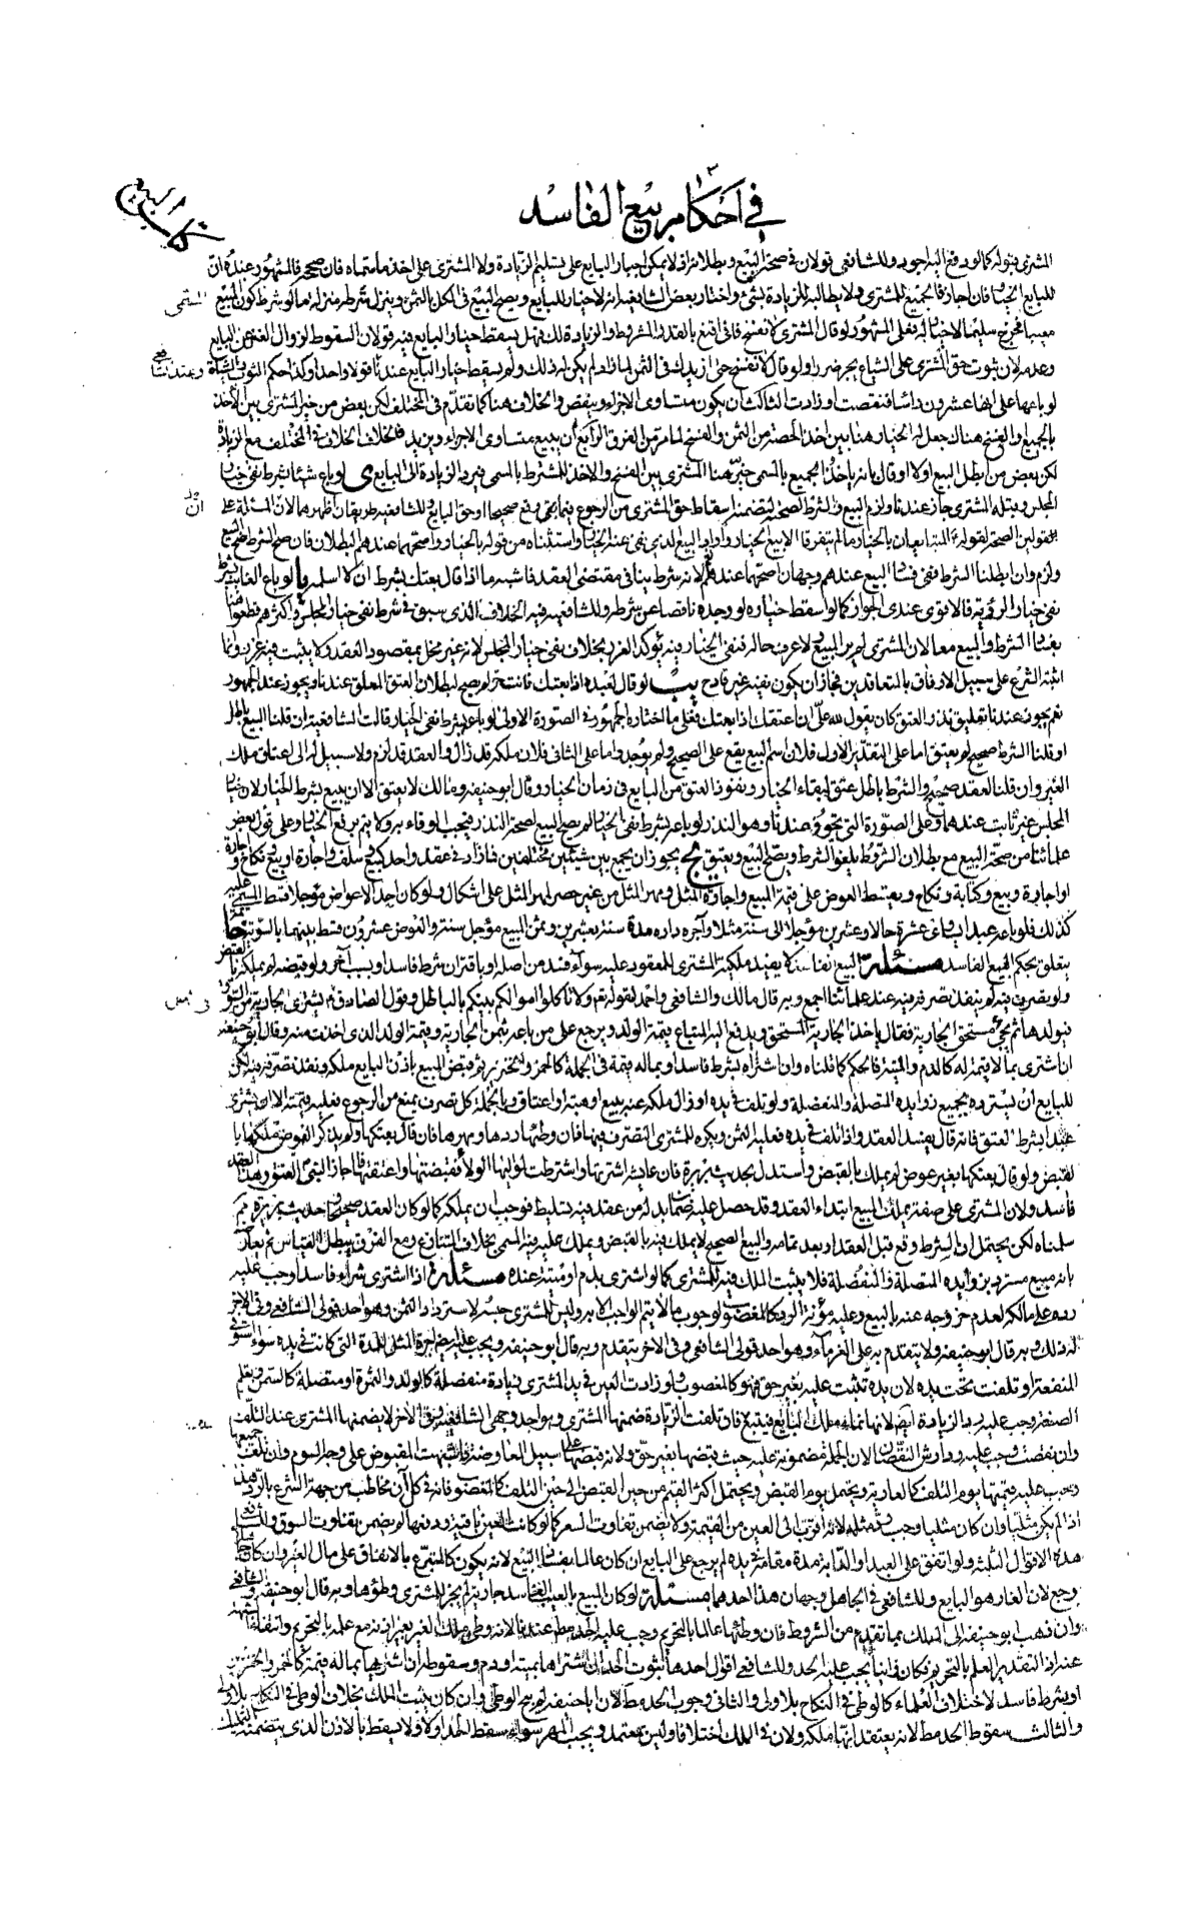 كتاب البيع
في احكام بيع الفاسد
المشترى قبوله كما لو دفع اليه اجود وللشافعى قولان فى صحة البيع وبطلانه اذ لا يمكن اجبار البايع على تسليم الزيادة ولا المشترى على اخذ ما سماه فان صح فالمشهور عنده ان
للبايع الخيار فان اجاز فالجميع للمشترى ولا يطالبه للزيادة بشئ واختار بعض الشافعية انه لا خيار للبايع ويصح البيع فى الكل بالثمن وينزل شرطه منزلة ما لو شرط كون المبيع
معيبا فخرج سليما لا خيار له فعلى المشهور لو قال المشترى لا تفسخ فانى اقنع بالقدر المشروط والزيادة لك فهل يسقط خيار البايع فيه قولان السقوط لزوال الغبن عن البايع
وعدمه لان ثبوت حق المشترى على الشياع يجر ضررا ولو قال لا تفسخ حتى ازيدك فى الثمن لما زاد لم يكن له ذلك ولم يسقط خيار البايع عندنا قولا واحدا وكذا حكم الثوب والشاة وعند الشافعى
لو باعها على انها عشرون شاة فنقصت او زادت الثالث ان يكون متساوى الاجزاء وينقص والخلاف هنا كما تقدم فى المختلف لكن بعض من خير المشترى بين الاخذ
بالجميع او الفسخ هناك جعل له الخيار هنا بين اخذ الحصة من الثمن والفسخ لما مر من الفرق الرابع ان يبيع متساوى الاجزاء ويزيد فالخلاف الخلاف فى المختلف مع الزيادة
لكن بعض من ابطل البيع اولا او قال بانه ياخذ الجميع بالمسمى خير هنا المشترى بين الفسخ والاخذ للمشترط بالمسمى فيرد الزيادة الى البايع ى لو باع شيئا بشرط نفى خيار
المجلس وقبله المشترى جاز عندنا ولزم البيع والشرط لصحته لتضمنه اسقاط حق المشترى من الرجوع فيما يقع وقع صحيحا او حق البايع وللشافعية طريقان اظهرهما ان المسئلة على
القولين الصحة لقوله المتبايعان بالخيار ما لم يتفرقا الا بيع الخيار وارادوا البيع الذى نفى عنه الخيار واستثناه من قوله بالخيار واصحهما عندهم البطلان فان صح الشرط صح البيع
ولزم وان ابطلنا الشرط ففى فساد البيع عندهم وجهان اصحهما عندهم نعم لانه شرط ينافى مقتضى العقد فاشبه ما اذا قال بعتك بشرط ان لا اسلمه يا لو باع الغايب بشرط
نفى خيار الرؤية فالاقوى عندى الجواز كما لو اسقط خياره لو وجده ناقصا عن شرطه وللشافعية فيه الخلاف الذى سبق فى شرط نفى خيار المجلس واكثرهم قطعوا هنا
بفساد الشرط والبيع معا لان المشترى لم ير المبيع ولا عرف حاله فنفى الخيار فيه يؤكد الغرر بخلاف نفى خيار المجلس لانه غير مخل بمقصود العقد ولا يثبت فيه غررا وانما
اثبته الشرع على سبيل الارفاق بالمتعاقدين فجاز ان يكون نفيه غير قادح يب لو قال لعبده اذا بعتك فانت حر لم يصح لبطلان العتق المعلق عندنا ويجوز عند الجمهور
نعم يجوز عندنا تعليق نذر العتق كان يقول لله على ان اعتقك اذا بعتك فعلى ما اختاره الجمهور فى الصورة الاولى لو باعه بشرط نفى الخيار قالت الشافعية ان قلنا البيع باطل
او قلنا الشرط صحيح لم يعتق اما على التقدير الاول فلان اسم البيع يقع على الصحيح ولم يوجد واما على الثانى فلان ملكه قد زال والعقد قد لزم ولا سبيل له الى اعتاق ملك
الغير وان قلنا العقد صحيح والشرط باطل عتق لبقاء الخيار ونفوذ العتق من البايع فى زمان الخيار وقال ابو حنيفة ومالك لا يعتق الا ان يبيع بشرط الخيار لان خيار
المجلس غير ثابت عندهما وعلى الصورة التى تجوز عندنا وهو النذر لو باعه بشرط نفى الخيار لم يصح البيع لصحة النذر فيجب الوفاء به ولا يتم برفع الخيار وعلى قول بعض
علمائنا من صحة البيع مع بطلان الشرط يلغو الشرط ويصح البيع ويعتق يج يجوز ان يجمع بين شيئين مختلفين فما زاد فى عقد واحد كبيع وسلف واجارة او بيع ونكاح واجارة
او اجارة وبيع وكتابة ونكاح ويقسط العوض على قيمة المبيع واجرة المثل ومهر المثل من غير حصر لمهر المثل على اشكال ولو كان احد الاعواض مؤجلا قسط المسمى عليه
كذلك فلو باعه عبدا يساوى عشرة حالا وعشرين مؤجلا الى سنة مثلا وآجره داره مدة سنة بعشرين وثمن المبيع مؤجل سنة والعوض عشرون قسط بينهما بالسوية
يتعلق بحكم البيع الفاسد مسئلة البيع الفاسد لا يفيد ملكية المشترى للمعقود عليه سواء فسد من اصله او باقتران شرط فاسد او بسبب آخر ولو قبضه لم يملكه بالقبض
ولو تصرف فيه لم ينفذ تصرفه فيه عند علمائنا اجمع وبه قال مالك والشافعى واحمد لقوله تعالى ولا تاكلوا اموالكم بينكم بالباطل وقول الصادق فى رجل يشترى الجارية من السوق
فيولدها ثم يجئ مستحق الجارية فقال ياخذ الجارية المستحق ويدفع اليه المبتاع قيمة الولد ويرجع على من باعه بثمن الجارية وقيمة الولد الذى اخذت منه وقال ابو حنيفة
ان اشترى بما لا قيمة له كالدم والميتة فالحكم كما قلناه وان اشتراه بشرط فاسد او بماله قيمة فى الجملة كالخمر والخنزير ثم قبض المبيع باذن البايع ملكه ونفذ تصرفه فيه لكن
للبايع ان يسترده بجميع زوايده المتصلة والمنفصلة ولو تلف فى يده او زال ملكه عنه ببيع او هبة او اعتاق وبالجملة كل تصرف يمنع من الرجوع فعليه قيمته الا اذا اشترى
عبدا بشرط العتق فانه قال يفسد العقد واذا تلف فى يده فعليه الثمن ويكره للمشترى التصرف فيها فان وطئها ردها ومهرها فان قال بعتكها ولم يذكر العوض ملكها با
لقبض ولو قال بعتكها بغير عوض لم يملك بالقبض واستدل بحديث بريرة فان عايشة اشترتها واشترطت لمواليها الولاء فقبضتها واعتقتها فاجاز النبى العتق وهذا العقد
فاسد ولان المشترى على صفة يملك المبيع ابتداء العقد وقد حصل عليه ضمان بدله من عقد فيه تسليط فوجب ان يملكه كما لو كان العقد صحيحا وحديث بريرة
سلمناه لكن يحتمل ان الشرط وقع قبل العقد او بعد تمامه والبيع الصحيح لا يملك فيه بالقبض ويملك عليه فيه المسمى بخلاف المتنازع ومع الفرق يبطل القياس ثم يعارض
بانه مبيع مسترد بزوايده المتصلة والمنفصلة فلا يثبت الملك فيه للمشترى كما لو اشترى بدم او ميتة عنده مسئلة اذا اشترى شراء فاسدا وجب عليه
رده على مالكه لعدم خروجه عنه بالبيع وعليه مؤنة الرد كالمغصوب لوجوب ما لا يتم الواجب الا به وليس للمشترى حبسه لاسترداد الثمن وهو احد قولى الشافعى وفى الاخر
له ذلك وبه قال ابو حنيفة ولا يتقدم به على الغرماء وهو احد قولى الشافعى وفى الاخر يتقدم وبه قال ابو حنيفة ويجب عليه اجرة المثل للمدة التى كانت فى يده سواء استوفى
المنفعة او تلفت تحت يده لان يده تثبت عليه بغير حق فهو كالمغصوب ولو زادت العين فى يد المشترى زيادة منفصلة كالولد والثمرة او متصلة كالسمن وتعلم
الصنعة وجب عليه رد الزيادة ايضا لانها نماء ملك البايع فيتبع فان تلفت الزيادة ضمنها المشترى وهو احد وجهى الشافعية وفى الاخر لا يضمنها المشترى عند التلف
وان نقصت وجب عليه رد ارش النقصان لان الجملة مضمونة عليه حيث قبضها بغير حق ولانه قبضها على سبيل المعاوضة فاشبهت المقبوض على وجه السوم وان تلف جميعها
وجب عليه قيمتها يوم التلف كالعارية ويحتمل يوم القبض ويحتمل اكثر القيم من حين القبض الى حين التلف كالمغصوب فانه فى كل آن مخاطب من جهة الشرع بالرد هذا
اذا لم يكن مثليا وان كان مثليا وجب رد مثله لانه اقرب الى العين من القيمة ولا يضمن تفاوت السعر كما لو كانت العين باقية ودفعها لم يضمن تفاوت السوق وللشافعى
هذه الاقوال الثلثة ولو انفق على العبد او الدابة مدة مقامه فى يده لم يرجع على البايع ان كان عالما بفساد البيع لانه يكون كالمتبرع بالانفاق على مال الغير وان كان جاهلا
رجع لان الغار هو البايع وللشافعى فى الجاهل وجهان هذا احدهما مسئلة لو كان المبيع بالبيع الفاسد جارية لم يجز للمشترى وطؤها وبه قال ابو حنيفة والشافعى
وان ذهب ابو حنيفة الى الملك مما تقدم من الشروط فان وطئها عالما بالتحريم وجب عليه الحد عندنا لانه وطئ ملك الغير بغير اذنه مع علمه بالتحريم وانتفاء الشبهة
عنه اذ التقدير العلم بالتحريم فكان زانيا يجب عليه الحد وللشافعى اقوال احدها ثبوت الحد ان اشتراها بميتة او دم وسقوطه ان اشتراها بماله قيمة كالخمر والخنزير
او بشرط فاسد لاختلاف العلماء كالوطى فى النكاح بلا ولى والثانى وجوب الحد مط لان ابا حنيفة لم يبح الوطى وان كان يثبت الملك بخلاف الوطى فى النكاح بلا ولى
والثالث سقوط الحد مط لانه يعتقد انها ملكه ولان فى الملك اختلافا وليس بمعتمد ويجب المهر سواء سقط الحد اولا ولا يسقط بالاذن الذى يتضمنه التمليك